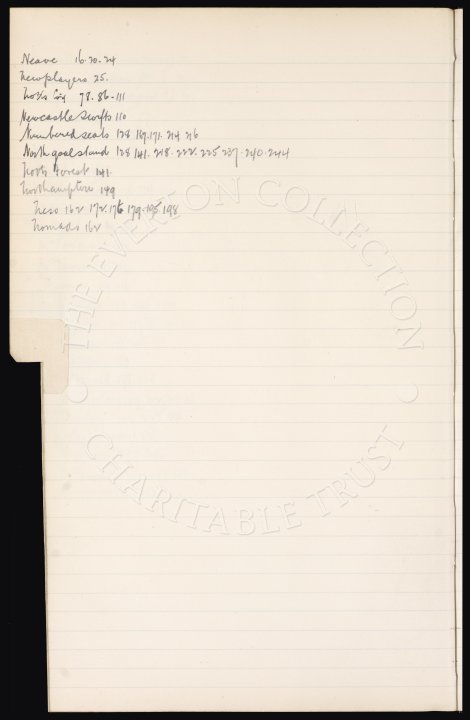 Neave 16.20.24
New players 25.
Notts 78.86.111
Newcastle 110
Numbered seats 128 167.171. 214 216
North goal stand 128 141. 218. 222. 225 237. 240. 244
Notts Forest 141.
Northampton 149
162 172.176 179.195 198
Nomads 162
THE EVERTON COLLECTION
CHARITABLE TRUST